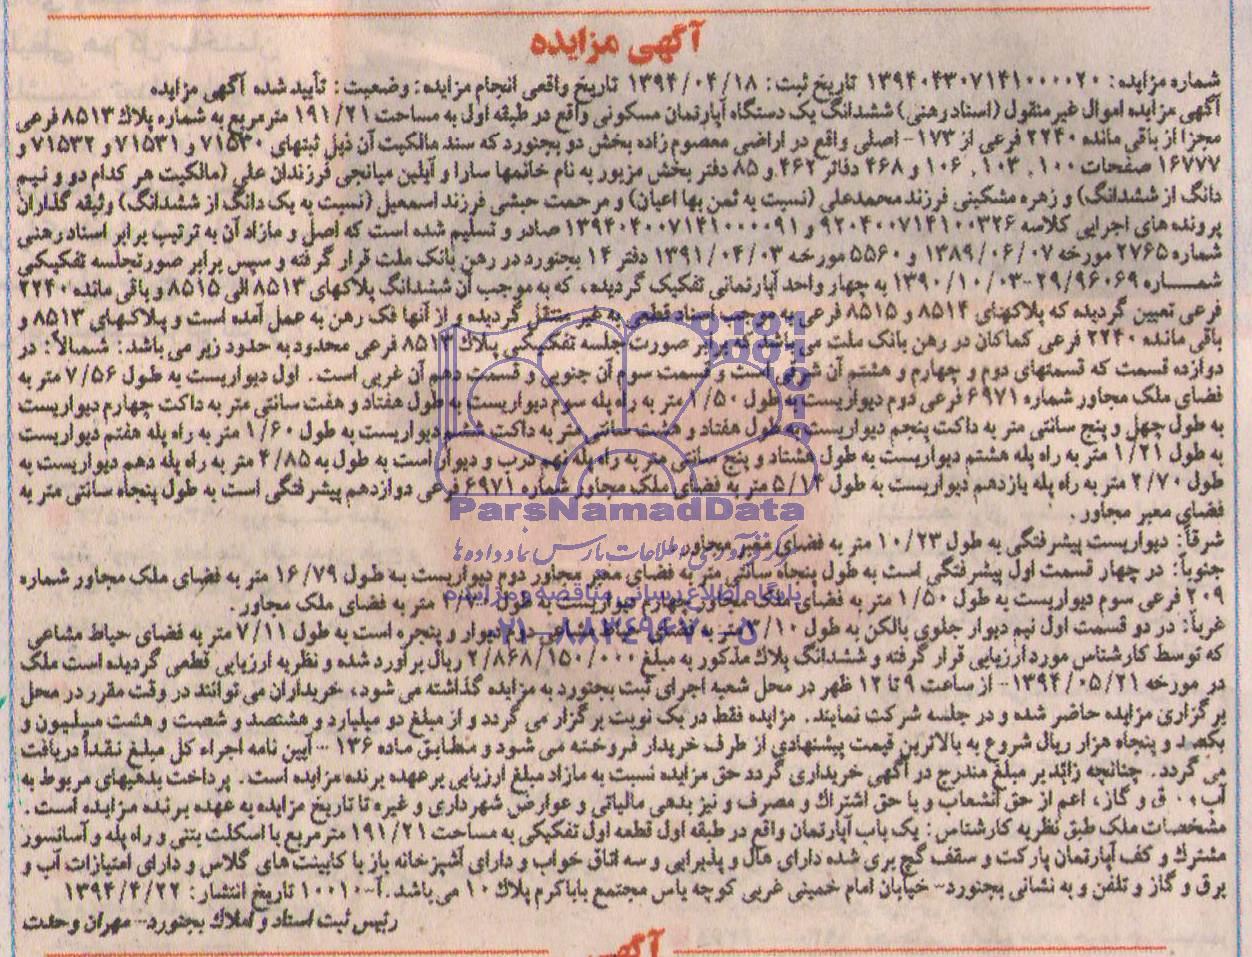 آگهی مزایده
شماره مزایده: ۱۳۹۴۰۴۳۰۷۱۴۱۰۰۰۰۲۰ تاریخ ثبت: ۱۳۹۴/۰۴/۱۸ تاریخ واقعی انجام مزایده: وضعیت: تأیید شده آگهی مزایده
آگهی مزایده اموال غیر منقول (اسناد رهنی) ششدانگ یک دستگاه آپارتمان مسکونی واقع در طبقه اول به مساحت ۱۹۱/۲۱ متر مربع به شماره پلاک ۸۵۱۳ فرعی
مجزا از باقی مانده ۲۲۴۰ فرعی از ۱۷۳- اصلی واقع در اراضی معصوم زاده بخش دو بجنورد که سند مالکیت آن ذیل ثبتهای ۷۱۵۳۰ و ۷۱۵۳۱ و ۷۱۵۳۲ و
۱۶۷۷۷ صفحات ۱۰۰, ۱۰۳, ۱۰۶ و ۴۶۸ دفاتر ۴۶۲ و ۸۵ دفتر بخش مزبور به نام خانمها سارا و آیلین میانجی فرزندان علی (مالکیت هر کدام دو و نیم
دانگ از ششدانگ) و زهره مشکینی فرزند محمدعلی (نسبت به ثمن بها اعیان) و مرحمت حبشی فرزند اسمعیل (نسبت به یک دانگ از ششدانگ) وثیقه گذاران
پرونده های اجرایی کلاسه ۹۲۰۴۰۰۷۱۴۱۰۰۳۲۶ و ۱۳۹۴۰۴۰۰۷۱۴۱۰۰۰۰۹۱ صادر و تسلیم شده است که اصل و مازاد آن به ترتیب برابر اسناد رهنی
شماره ۲۷۶۵ مورخه ۱۳۸۹/۰۶/۰۷ و ۵۵۶۰ مورخه ۱۳۹۱/۰۴/۰۳ دفتر ۱۴ بجنورد در رهن بانک ملت قرار گرفته و سپس برابر صورتجلسه تفکیکی
شماره ۲۹/۹۶۰۶۹-۱۳۹۰/۱۰/۰۳ به چهار واحد آپارتمانی تفکیک گردیده، که به موجب آن ششدانگ پلاکهای ۸۵۱۳ الی ۸۵۱۵ و باقی مانده ۲۲۴۰
فرعی تعیین گردیده که پلاکهای ۸۵۱۴ و ۸۵۱۵ فرعی به موجب اسناد قطعی به غیر منتقل گردیده و از آنها فک رهن به عمل آمده است و پلاکهای ۸۵۱۳ و
باقی مانده ۲۲۴۰ فرعی کماکان در رهن بانک ملت می باشد که برابر صورت جلسه تفکیکی پلاک ۸۵۱۳ فرعی محدود به حدود زیر می باشد: شمالاً: در
دوازده قسمت که قسمتهای دوم و چهارم و هشتم آن شرقی است و قسمت سوم آن جنوبی و قسمت دهم آن غربی است. اول دیواریست به طول ۷/۵۶ متر به
فضای ملک مجاور شماره ۶۹۷۱ فرعی دوم دیواریست به طول ۱/۵۰ متر به راه پله سوم دیواریست به طول هفتاد و هفت سانتی متر به داکت چهارم دیواریست
به طول چهل و پنج سانتی متر به داکت پنجم دیواریست به طول هفتاد و هشت سانتی متر به داکت ششم دیواریست به طول ۱/۶۰ متر به راه پله هفتم دیواریست
به طول ۱/۲۱ متر به راه پله هشتم دیواریست به طول هشتاد و پنج سانتی متر به راه پله نهم درب و دیوار است به طول به ۴/۸۵ متر به راه پله دهم دیواریست به
طول ۲/۷۰ متر به راه پله یازدهم دیواریست به طول ۵/۱۴ متر به فضای ملک مجاور شماره ۶۹۷۱ فرعی دوازدهم پیشرفتگی است به طول پنجاه سانتی متر به
فضای معبر مجاور.
ParsNamadData
شرقاً: دیواریست پیشرفتگی به طول ۱۰/۲۳ متر به فضای معبر مجاور
مرکز فرآوری اطلاعات پارس نماد داده ها
جنوباً: در چهار قسمت اول پیشرفتگی است به طول پنجاه سانتی متر به فضای معبر مجاور دوم دیواریست به طول ۱۶/۷۹ متر به فضای ملک مجاور شماره
پایگاه اطلاع رسانی مناقصه و مزایده
۲۰۹ فرعی سوم دیواریست به طول ۱/۵۰ متر به فضای ملک مجاور چهارم دیواریست به طول متر به فضای ملک مجاور.
غرباً: در دو قسمت اول نیم دیوار جلوی بالکن به طول ۳/۱۰ متر به فضای حیاط مشاعی دوم دیوار و پنجره است به طول ۷/۱۱ متر به فضای حیاط مشاعی
۰۲۱-۸۸۳۴۹۶۷۰-۵
که توسط کارشناس مورد ارزیابی قرار گرفته و ششدانگ پلاک مذکور به مبلغ ۲/۸۶۸/۱۵۰/۰۰۰ ریال برآورد شده و نظریه ارزیابی قطعی گردیده است ملک
در مورخه ۱۳۹۴/۰۵/۲۱- از ساعت ۹ تا ۱۲ ظهر در محل شعبه اجرای ثبت بجنورد به مزایده گذاشته می شود، خریداران می توانند در وقت مقرر در محل
برگزاری مزایده حاضر شده و در جلسه شرکت نمایند. مزایده فقط در یک نوبت برگزار می گردد و از مبلغ دو میلیارد و هشتصد و شصت و هشت میلیون و
یکصد و پنجاه هزار ریال شروع به بالاترین قیمت پیشنهادی از طرف خریدار فروخته می شود و مطابق ماده ۱۳۶ -آیین نامه اجراء کل مبلغ نقداً دریافت
می گردد. چنانچه زائد بر مبلغ مندرج در آگهی خریداری گردد حق مزایده نسبت به مازاد مبلغ ارزیابی بر عهده برنده مزایده است. پرداخت بدهیهای مربوط به
آب، ق و گاز، اعم از حق انشعاب و یا حق اشتراک و مصرف و نیز بدهی مالیاتی و عوارض شهرداری و غیره تا تاریخ مزایده به عهده برنده مزایده است.
مشخصات ملک طبق نظریه کارشناس: یک باب آپارتمان واقع در طبقه اول قطعه اول تفکیکی به مساحت ۱۹۱/۲۱ متر مربع با اسکلت بتنی و راه پله و آسانسور
مشترک و کف آپارتمان پارکت و سقف گچ بری شده دارای هال و پذیرایی و سه اتاق خواب و دارای آشپزخانه باز با کابینت های گلاس و دارای امتیازات آب و
برق و گاز و تلفن و به نشانی بجنورد- خیابان امام خمینی غربی کوچه یاس مجتمع باباکرم پلاک ۱۰ می باشد. آ-۱۰۰۱۰ تاریخ انتشار: ۱۳۹۴/۴/۲۲
رئیس ثبت اسناد و املاک بجنورد- مهران وحدت
آگهی